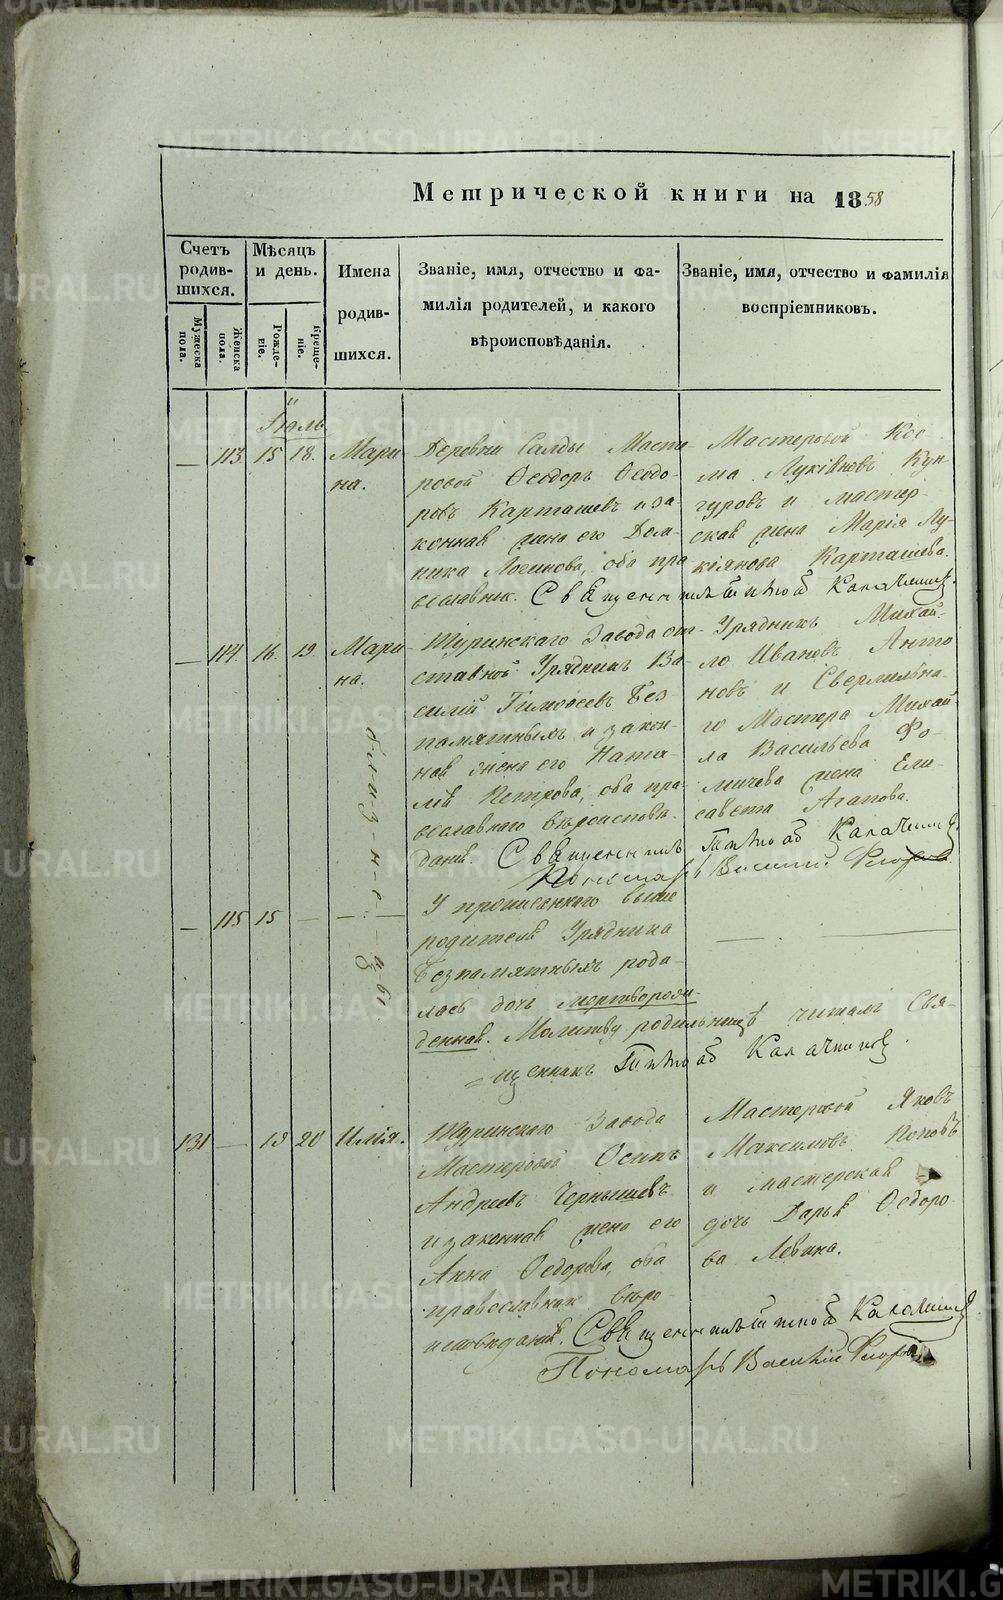 Метрической книги на 1858
Счетъ родив-шихся.
Мужеска пола.
Женска пола.
Мѣсяцъ и день.
Рожде-ніе.
Креще-ніе.
Имена родив-шихся.
Званіе, имя, отчество и фа-
милія родителей, и какого
вѣроисповѣданія.
Званіе, имя, отчество и фамилія
воспріемниковъ.
Іюль
— 113. 15 18. Мари-
на.
Деревни Салды Масте-
ровой Ѳеодоръ Ѳеодо-
ровъ Карташевъ и за-
конная жена его Дом-
ника Логинова, оба пра
вославные. Священникъ
Мастеровой Кос
ма Лукіяновъ Кун-
гуровъ и мастер-
ская жена Марія Лу-
кіянова Карташева.
— 114. 16. 19. Мари-
на.
Туринскаго Завода от-
ставной Урядникъ Ва-
силій Тимоѳеевъ Без-
памятныхъ и закон-
ная жена его Ната-
лія Петрова, оба пра-
вославнаго вѣроиспове-
данія. Священникъ
Урядникъ Михай-
ло Ивановъ Анто
новъ и Сверлильна-
го Мастера Михай-
ла Васильева Фо-
мичева жена Ели-
савета Агапова.
Пономарь Василий
близнецы
— 115 15 — — —
У прописаннаго выше
родителя Урядника
Безпамятныхъ роди-
лась дочь мертворож-
денная. Молитву родильницѣ читалъ Свя-
щенникъ
131 — 19 20 Илія.
Туринскаго Завода
Мастеровой Осипъ
Андреевъ Чернышевъ
и законная жена его
Анна Ѳедорова, оба
православнаго вѣро-
исповѣданія. Священникъ
Мастеровой Яковъ
Максимовъ Поповъ
и мастерская
дочь Дарья Ѳедоро-
ва Левина.
Пономарь Василій
METRIKI.GASO-URAL.RU